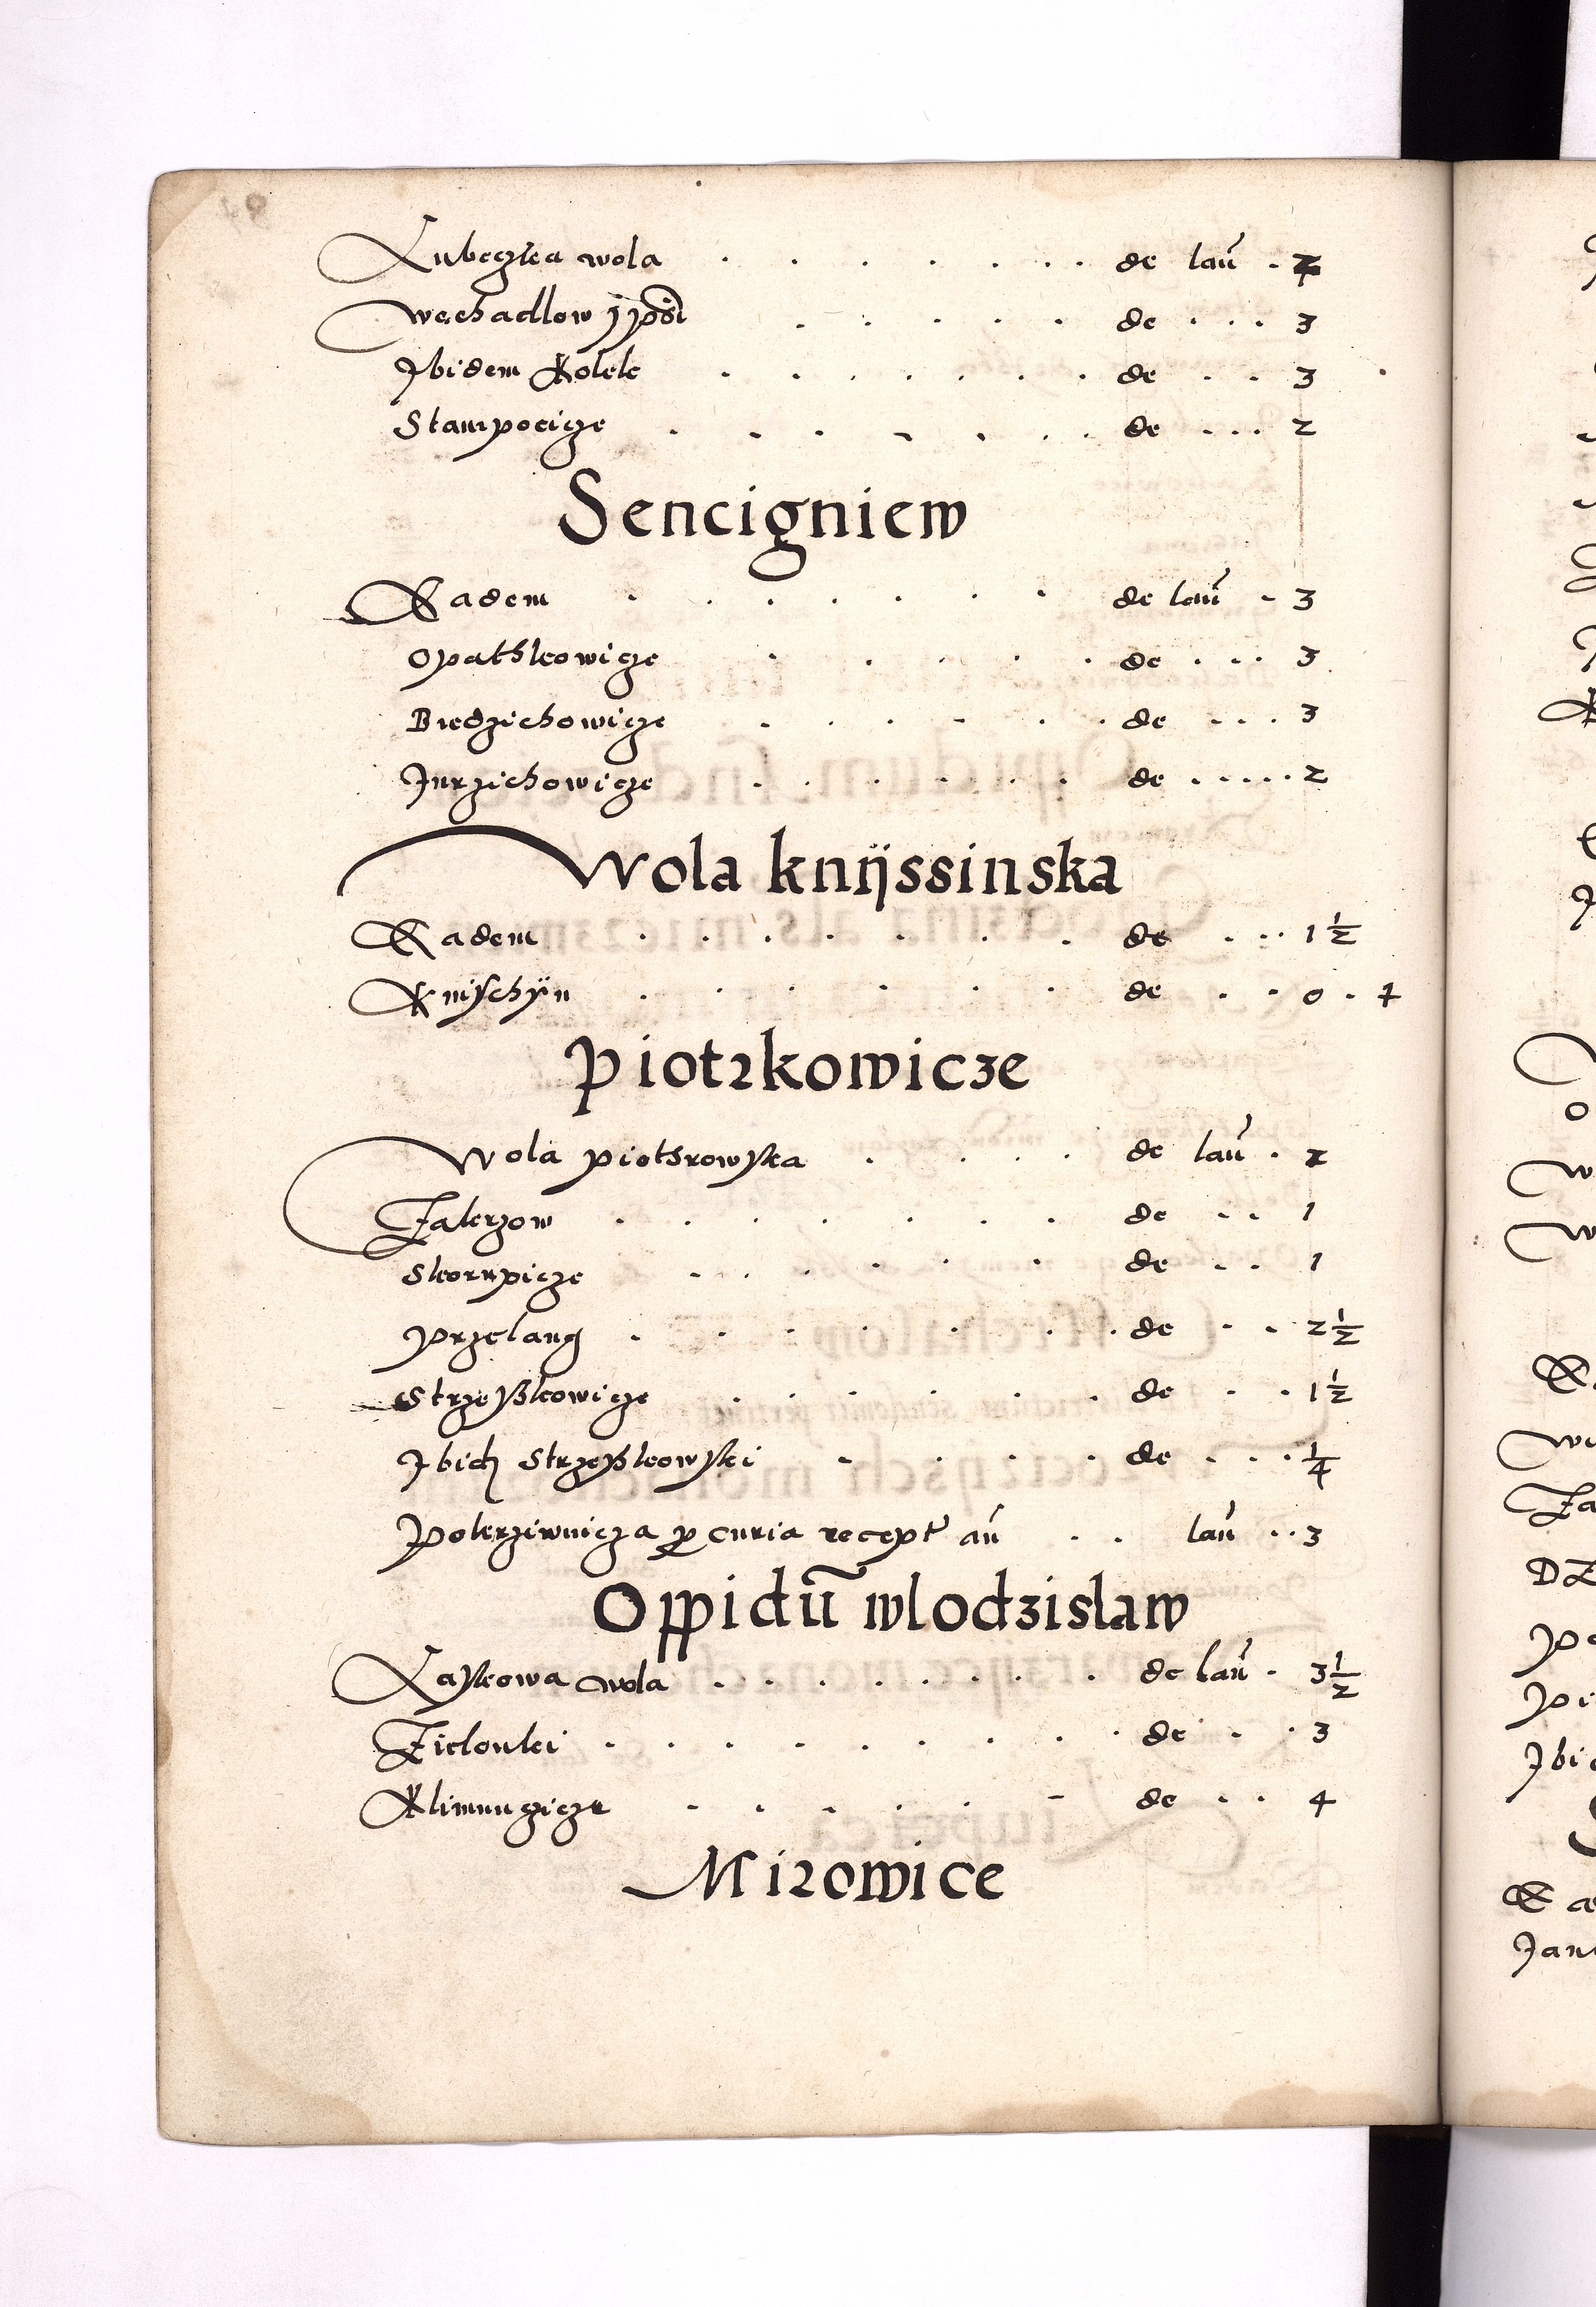 Lubczka wola . . . . . . . de lanˉ . 2
wechadlow ypsū . . . . . de . . . 3
Ibidem Kolek . . . . . . de . . 3
Stampocicze . . . . . . . de . . . 2
Sencigniew
Eadem . . . . . . . de lanˉ . 3
Opathkowicze . . . . . de . . . 3
Biedzichowicze . . . . . . de . . . 3
Jurzichowicze . . . . . . de . . . . . 2
Wola knÿssinska
Eadem . . . . . . . de . . . 1 ½
Knÿschÿn . . . . . . de . . 0 . 4
Piotrkowicze
Wola piothrowska . . . . de lanˉ . 2
Zakrzow . . . . . . . de . . 1
Skorupicze . . . . . . de . . 1
Przelang . . . . . . . de . . 2 ½
Strzeskowicze . . . . . . de . . 1 ½
Ibid Strzeskowski . . . . de . . . ¼
Pokrziwnicza p curia recept an . . lanˉ . . 3
Oppidū wlodzislaw
Laskowa wola . . . . . . . de lanˉ . 3 ½
Zielonki . . . . . . . . de . . 3
Klimunczicze . . . . . . de . . 4
Mirowice